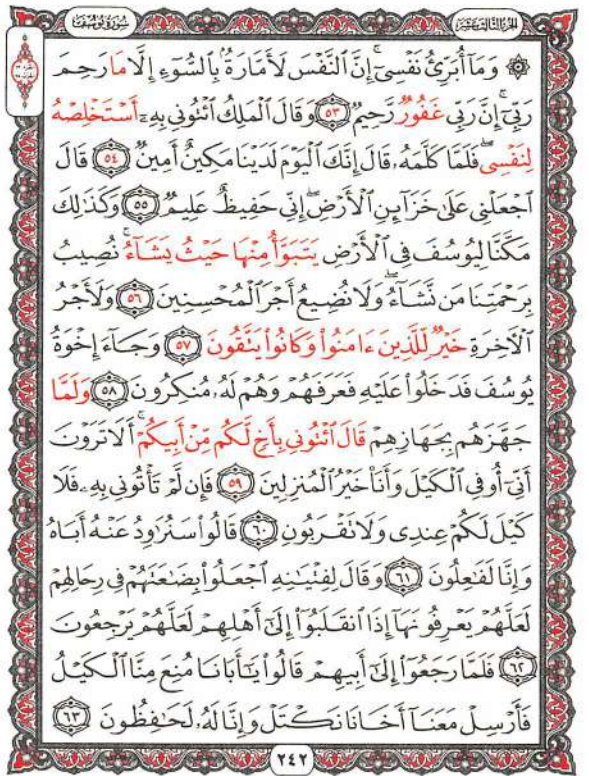 الجزء الثالث عشر
سورة يوسف
۞ وَمَآ أُبَرِّئُ نَفْسِىٓ ۚ إِنَّ ٱلنَّفْسَ لَأَمَّارَةٌۢ بِٱلسُّوٓءِ إِلَّا مَا رَحِمَ
رَبِّىٓ ۚ إِنَّ رَبِّى غَفُورٌ رَّحِيمٌ ٥٣ وَقَالَ ٱلْمَلِكُ ٱئْتُونِى بِهِۦٓ أَسْتَخْلِصْهُ
لِنَفْسِى ۖ فَلَمَّا كَلَّمَهُۥ قَالَ إِنَّكَ ٱلْيَوْمَ لَدَيْنَا مَكِينٌ أَمِينٌ ٥٤ قَالَ
ٱجْعَلْنِى عَلَىٰ خَزَآئِنِ ٱلْأَرْضِ ۖ إِنِّى حَفِيظٌ عَلِيمٌ ٥٥ وَكَذَٰلِكَ
مَكَّنَّا لِيُوسُفَ فِى ٱلْأَرْضِ يَتَبَوَّأُ مِنْهَا حَيْثُ يَشَآءُ ۚ نُصِيبُ
بِرَحْمَتِنَا مَن نَّشَآءُ ۖ وَلَا نُضِيعُ أَجْرَ ٱلْمُحْسِنِينَ ٥٦ وَلَأَجْرُ
ٱلْءَاخِرَةِ خَيْرٌ لِّلَّذِينَ ءَامَنُوا۟ وَكَانُوا۟ يَتَّقُونَ ٥٧ وَجَآءَ إِخْوَةُ
يُوسُفَ فَدَخَلُوا۟ عَلَيْهِ فَعَرَفَهُمْ وَهُمْ لَهُۥ مُنكِرُونَ ٥٨ وَلَمَّا
جَهَّزَهُم بِجَهَازِهِمْ قَالَ ٱئْتُونِى بِأَخٍ لَّكُم مِّنْ أَبِيكُمْ ۚ أَلَا تَرَوْنَ
أَنِّىٓ أُوفِى ٱلْكَيْلَ وَأَنَا۠ خَيْرُ ٱلْمُنزِلِينَ ٥٩ فَإِن لَّمْ تَأْتُونِى بِهِۦ فَلَا
كَيْلَ لَكُمْ عِندِى وَلَا تَقْرَبُونِ ٦٠ قَالُوا۟ سَنُرَٰوِدُ عَنْهُ أَبَاهُ
وَإِنَّا لَفَٰعِلُونَ ٦١ وَقَالَ لِفِتْيَٰنِهِ ٱجْعَلُوا۟ بِضَٰعَتَهُمْ فِى رِحَالِهِمْ
لَعَلَّهُمْ يَعْرِفُونَهَآ إِذَا ٱنقَلَبُوٓا۟ إِلَىٰٓ أَهْلِهِمْ لَعَلَّهُمْ يَرْجِعُونَ
٦٢ فَلَمَّا رَجَعُوٓا۟ إِلَىٰٓ أَبِيهِمْ قَالُوا۟ يَٰٓأَبَانَا مُنِعَ مِنَّا ٱلْكَيْلُ
فَأَرْسِلْ مَعَنَآ أَخَانَا نَكْتَلْ وَإِنَّا لَهُۥ لَحَٰفِظُونَ ٦٣
٢٤٢